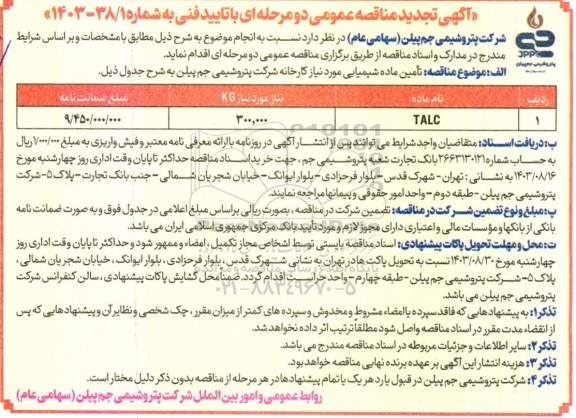 «آگهی تجدید مناقصه عمومی دو مرحله ای با تایید فنی به شماره ۳۸/۱-۱۴۰۳»
JPPC
پتروشیمی جم پیلن
شرکت پتروشیمی جم پیلن (سهامی عام) در نظر دارد نسبت به انجام موضوع به شرح ذیل مطابق با مشخصات و بر اساس شرایط
مندرج در مدارک و اسناد مناقصه از طریق برگزاری مناقصه عمومی دو مرحله ای اقدام نماید.
الف: موضوع مناقصه: تأمین ماده شیمیایی مورد نیاز کارخانه شرکت پتروشیمی جم پیلن به شرح جدول ذیل.
ردیف نام ماده نیاز مورد نیاز KG مبلغ ضمانت نامه
۱ TALC ۳۰۰,۰۰۰ ۹/۴۵۰/۰۰۰/۰۰۰
ب: دریافت اسناد: متقاضیان واجد شرایط می توانند پس از انتشار آگهی در روزنامه با ارائه معرفی نامه معتبر و فیش واریزی به مبلغ ۱/۰۰۰/۰۰۰ ریال
به حساب شماره ۲۶۶۳۱۳۰۱۲۱ بانک تجارت شعبه پتروشیمی جم، جهت خرید اسناد مناقصه حداکثر تا پایان وقت اداری روز چهارشنبه مورخ
۱۴۰۳/۰۸/۱۶ به نشانی: تهران - شهرک قدس - بلوار فرحزادی - بلوار ایوانک - خیابان شجریان شمالی - جنب بانک تجارت - پلاک ۵- شرکت
پتروشیمی جم پیلن - طبقه دوم - واحد امور حقوقی و پیمانها مراجعه نمایند.
پ: مبلغ و نوع تضمین شرکت در مناقصه: تضمین شرکت در مناقصه، بصورت ریالی براساس مبلغ اعلامی در جدول فوق و به صورت ضمانت نامه
بانکی از بانکها و مؤسسات مالی و اعتباری دارای مجوز لازم و مورد تأیید بانک مرکزی جمهوری اسلامی ایران می باشد.
ت: محل و مهلت تحویل پاکات پیشنهادی: اسناد مناقصه بایستی توسط اشخاص مجاز تکمیل، امضاء و ممهور شود و حداکثر تا پایان وقت اداری روز
چهارشنبه مورخ ۱۴۰۳/۰۸/۳۰ نسبت به تحویل پاکت ها در تهران به نشانی شهرک قدس، بلوار فرحزادی، بلوار ایوانک، خیابان شجریان شمالی،
پلاک ۵- شرکت پتروشیمی جم پیلن - طبقه چهارم - واحد حراست اقدام گردد. ضمنا محل گشایش پاکات پیشنهادی، سالن کنفرانس شرکت
پتروشیمی جم پیلن می باشد.
۰۲۱-۸۸۳۴۹۶۷۰-۵
تذکر۱: به پیشنهادهایی که فاقد سپرده یا امضاء مشروط و مخدوش و سپرده های کمتر از میزان مقرر، چک شخصی و نظایر آن و پیشنهادهایی که پس
از انقضاء مدت مقرر در اسناد مناقصه واصل شود مطلقاً ترتیب اثر داده نخواهد شد.
تذکر۲: سایر اطلاعات و جزئیات مربوطه در اسناد مناقصه مندرج می باشد.
تذکر۳: هزینه انتشار این آگهی بر عهده برنده نهایی مناقصه خواهد بود.
تذکر۴: شرکت پتروشیمی جم پیلن در قبول یا رد هر یک یا تمام پیشنهادها در هر مرحله از مناقصه بدون ذکر دلیل مختار است.
روابط عمومی و امور بین الملل شرکت پتروشیمی جم پیلن (سهامی عام)